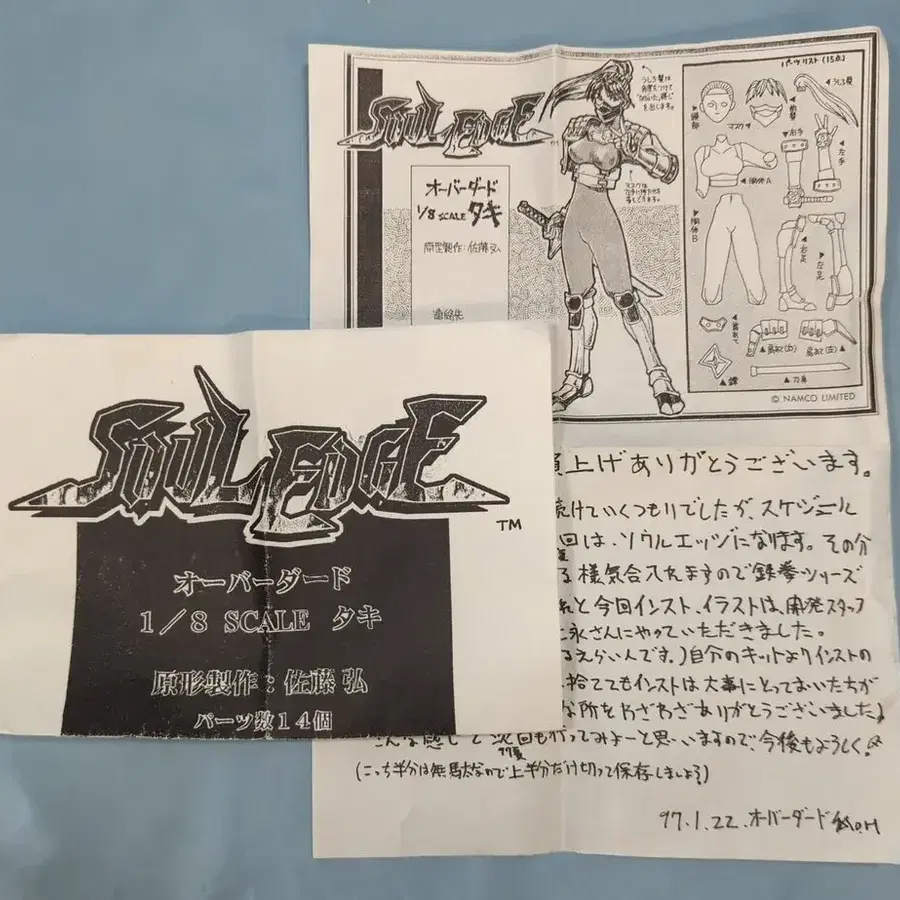 SOUL EDGE
オーバーダード
1/8 SCALE タキ
原型製作:佐藤弘
連絡先
うしろ髪は
角度をつけて
マスクは
パーツリスト(15点)
うしろ髪
前髪
マスク
頭部
右手
左手
胴体A
胴体B
右足
左足
肩あて(右)
肩あて(左)
鍔
刀身
© NAMCO LIMITED
SOUL EDGE
TM
オーバーダード
1/8 SCALE タキ
原形製作:佐藤弘
パーツ数14個
上げありがとうございます。
けていくつもりでしたが、スケジュール
回は、ソウルエッジになります。その分
る様気合入れますので鉄拳シリーズ
と今回インスト、イラストは、開発スタッフ
永さんにやっていただきました。
るえらい人です。)自分のキットよりインストの
捨ててもインストは大事にとっておいた方が
な所をわざわざありがとうございました
こんな感じで次回も行ってみよーと思いますので、今後もよろしく!
(こっち半分は無駄なので上半分だけ切って保存しましょう)
97.1.22.オーバーダード